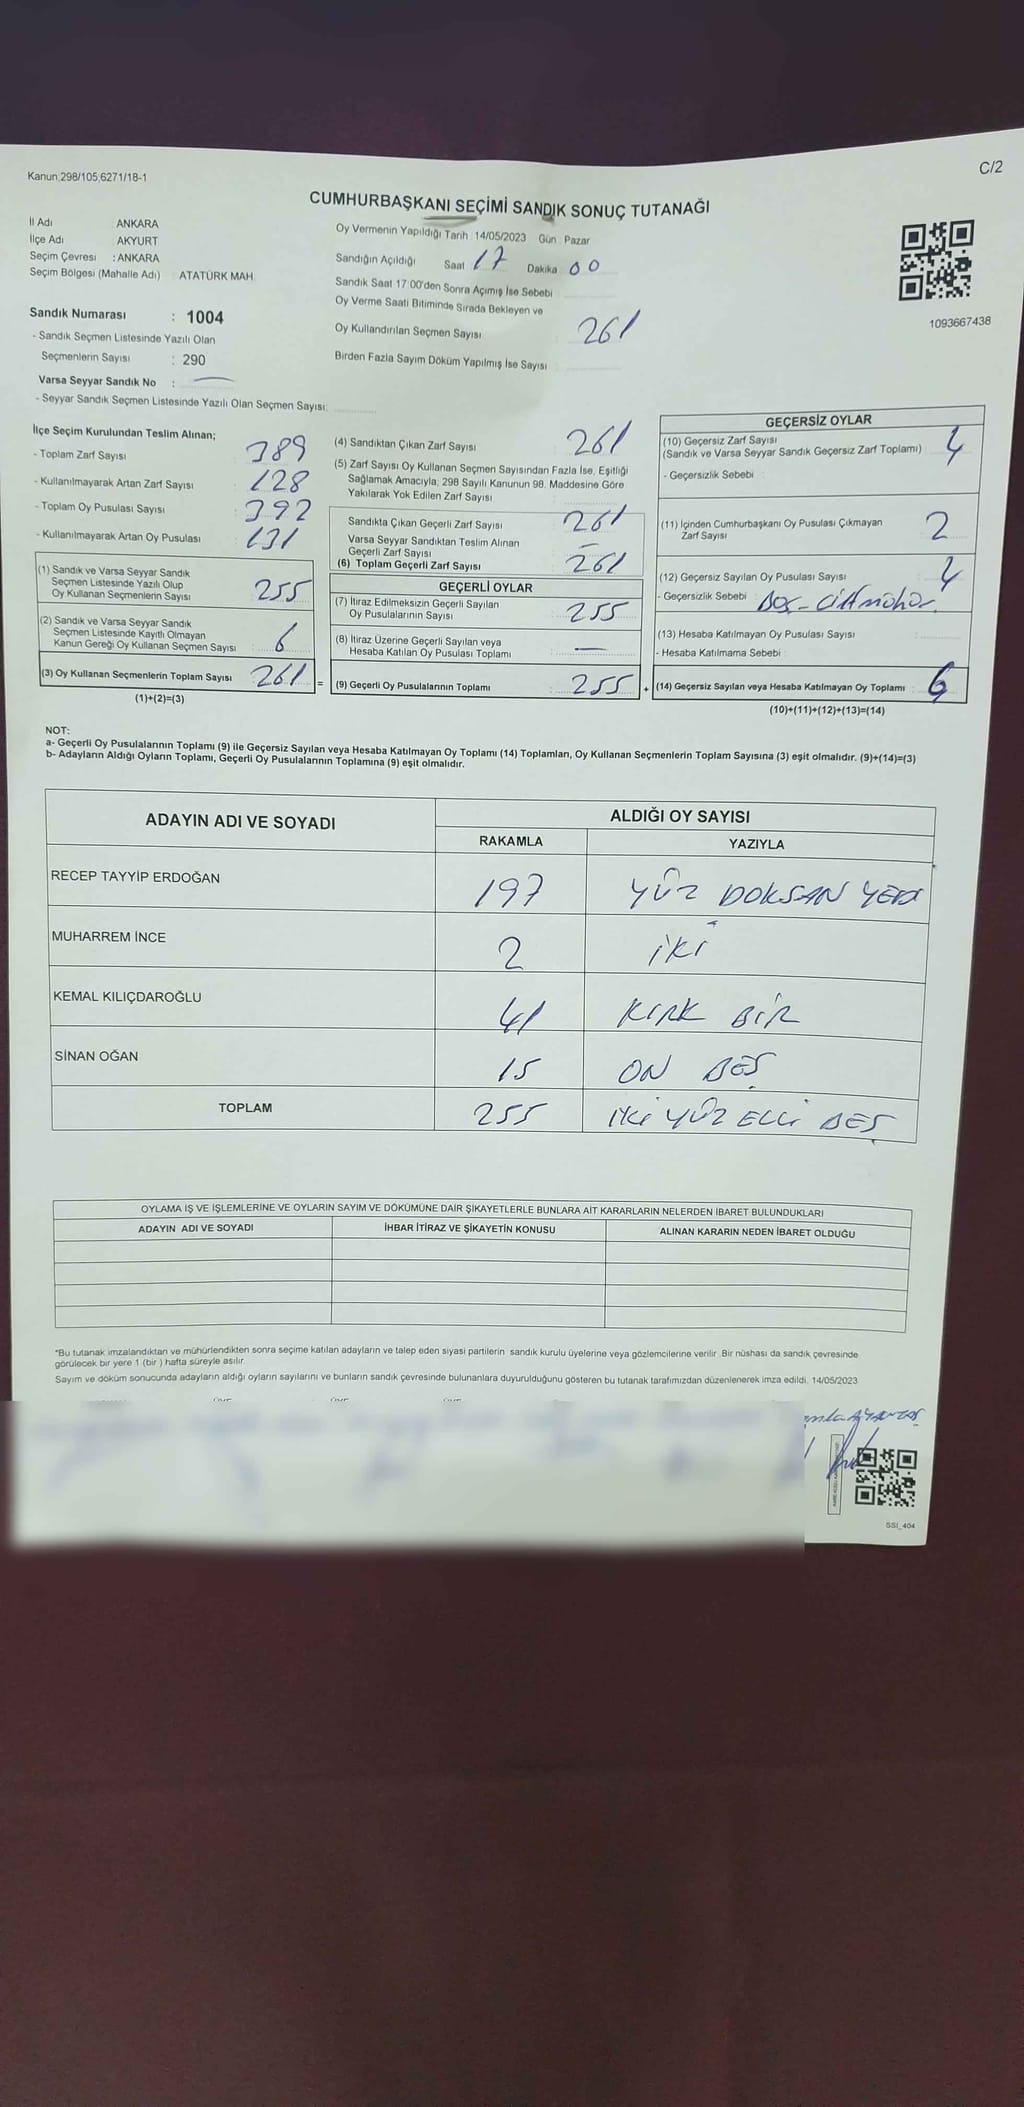 Kanun;298/105;6271/18-1
C/2
CUMHURBAŞKANI SEÇİMİ SANDIK SONUÇ TUTANAĞI
İl Adı ANKARA
İlçe Adı AKYURT
Seçim Çevresi : ANKARA
Seçim Bölgesi (Mahalle Adı) : ATATÜRK MAH.
Sandık Numarası : 1004
- Sandık Seçmen Listesinde Yazılı Olan
Seçmenlerin Sayısı : 290
Varsa Seyyar Sandık No : —
- Seyyar Sandık Seçmen Listesinde Yazılı Olan Seçmen Sayısı:
Oy Vermenin Yapıldığı Tarih :14/05/2023 Gün : Pazar
Sandığın Açıldığı Saat 17 Dakika 00
Sandık Saat 17:00'den Sonra Açımış İse Sebebi
Oy Verme Saati Bitiminde Sırada Bekleyen ve
Oy Kullandırılan Seçmen Sayısı : 261
Birden Fazla Sayım Döküm Yapılmış İse Sayısı :
1093667438
İlçe Seçim Kurulundan Teslim Alınan;
- Toplam Zarf Sayısı : 389
- Kullanılmayarak Artan Zarf Sayısı : 128
- Toplam Oy Pusulası Sayısı : 392
- Kullanılmayarak Artan Oy Pusulası : 131
(1) Sandık ve Varsa Seyyar Sandık
Seçmen Listesinde Yazılı Olup
Oy Kullanan Seçmenlerin Sayısı : 255
(2) Sandık ve Varsa Seyyar Sandık
Seçmen Listesinde Kayıtlı Olmayan
Kanun Gereği Oy Kullanan Seçmen Sayısı : 6
(3) Oy Kullanan Seçmenlerin Toplam Sayısı : 261 =
(1)+(2)=(3)
(4) Sandıktan Çıkan Zarf Sayısı : 261
(5) Zarf Sayısı Oy Kullanan Seçmen Sayısından Fazla İse, Eşitliği
Sağlamak Amacıyla, 298 Sayılı Kanunun 98. Maddesine Göre
Yakılarak Yok Edilen Zarf Sayısı :
Sandıkta Çıkan Geçerli Zarf Sayısı : 261
Varsa Seyyar Sandıktan Teslim Alınan
Geçerli Zarf Sayısı : —
(6) Toplam Geçerli Zarf Sayısı : 261
GEÇERLİ OYLAR
(7) İtiraz Edilmeksizin Geçerli Sayılan
Oy Pusulalarının Sayısı : 255
(8) İtiraz Üzerine Geçerli Sayılan veya
Hesaba Katılan Oy Pusulası Toplamı : —
(9) Geçerli Oy Pusulalarının Toplamı : 255 +
GEÇERSİZ OYLAR
(10) Geçersiz Zarf Sayısı
(Sandık ve Varsa Seyyar Sandık Geçersiz Zarf Toplamı) : 4
- Geçersizlik Sebebi :
(11) İçinden Cumhurbaşkanı Oy Pusulası Çıkmayan
Zarf Sayısı : 2
(12) Geçersiz Sayılan Oy Pusulası Sayısı : 4
- Geçersizlik Sebebi : BOŞ -
(13) Hesaba Katılmayan Oy Pusulası Sayısı :
- Hesaba Katılmama Sebebi :
(14) Geçersiz Sayılan veya Hesaba Katılmayan Oy Toplamı : 6
(10)+(11)+(12)+(13)=(14)
NOT:
a- Geçerli Oy Pusulalarının Toplamı (9) ile Geçersiz Sayılan veya Hesaba Katılmayan Oy Toplamı (14) Toplamları, Oy Kullanan Seçmenlerin Toplam Sayısına (3) eşit olmalıdır. (9)+(14)=(3)
b- Adayların Aldığı Oyların Toplamı, Geçerli Oy Pusulalarının Toplamına (9) eşit olmalıdır.
ADAYIN ADI VE SOYADI ALDIĞI OY SAYISI
RAKAMLA YAZIYLA
RECEP TAYYİP ERDOĞAN 197 YÜZ DOKSAN YEDİ
MUHARREM İNCE 2 İKİ
KEMAL KILIÇDAROĞLU 41 KIRK BİR
SİNAN OĞAN 15 ON BEŞ
TOPLAM 255 İKİ YÜZ ELLİ BEŞ
OYLAMA İŞ VE İŞLEMLERİNE VE OYLARIN SAYIM VE DÖKÜMÜNE DAİR ŞİKAYETLERLE BUNLARA AİT KARARLARIN NELERDEN İBARET BULUNDUKLARI
ADAYIN ADI VE SOYADI İHBAR İTİRAZ VE ŞİKAYETİN KONUSU ALINAN KARARIN NEDEN İBARET OLDUĞU
*Bu tutanak imzalandıktan ve mühürlendikten sonra seçime katılan adayların ve talep eden siyasi partilerin sandık kurulu üyelerine veya gözlemcilerine verilir. Bir nüshası da sandık çevresinde
görülecek bir yere 1 (bir) hafta süreyle asılır.
Sayım ve döküm sonucunda adayların aldığı oyların sayılarını ve bunların sandık çevresinde bulunanlara duyurulduğunu gösteren bu tutanak tarafımızdan düzenlenerek imza edildi. 14/05/2023
SSİ_404